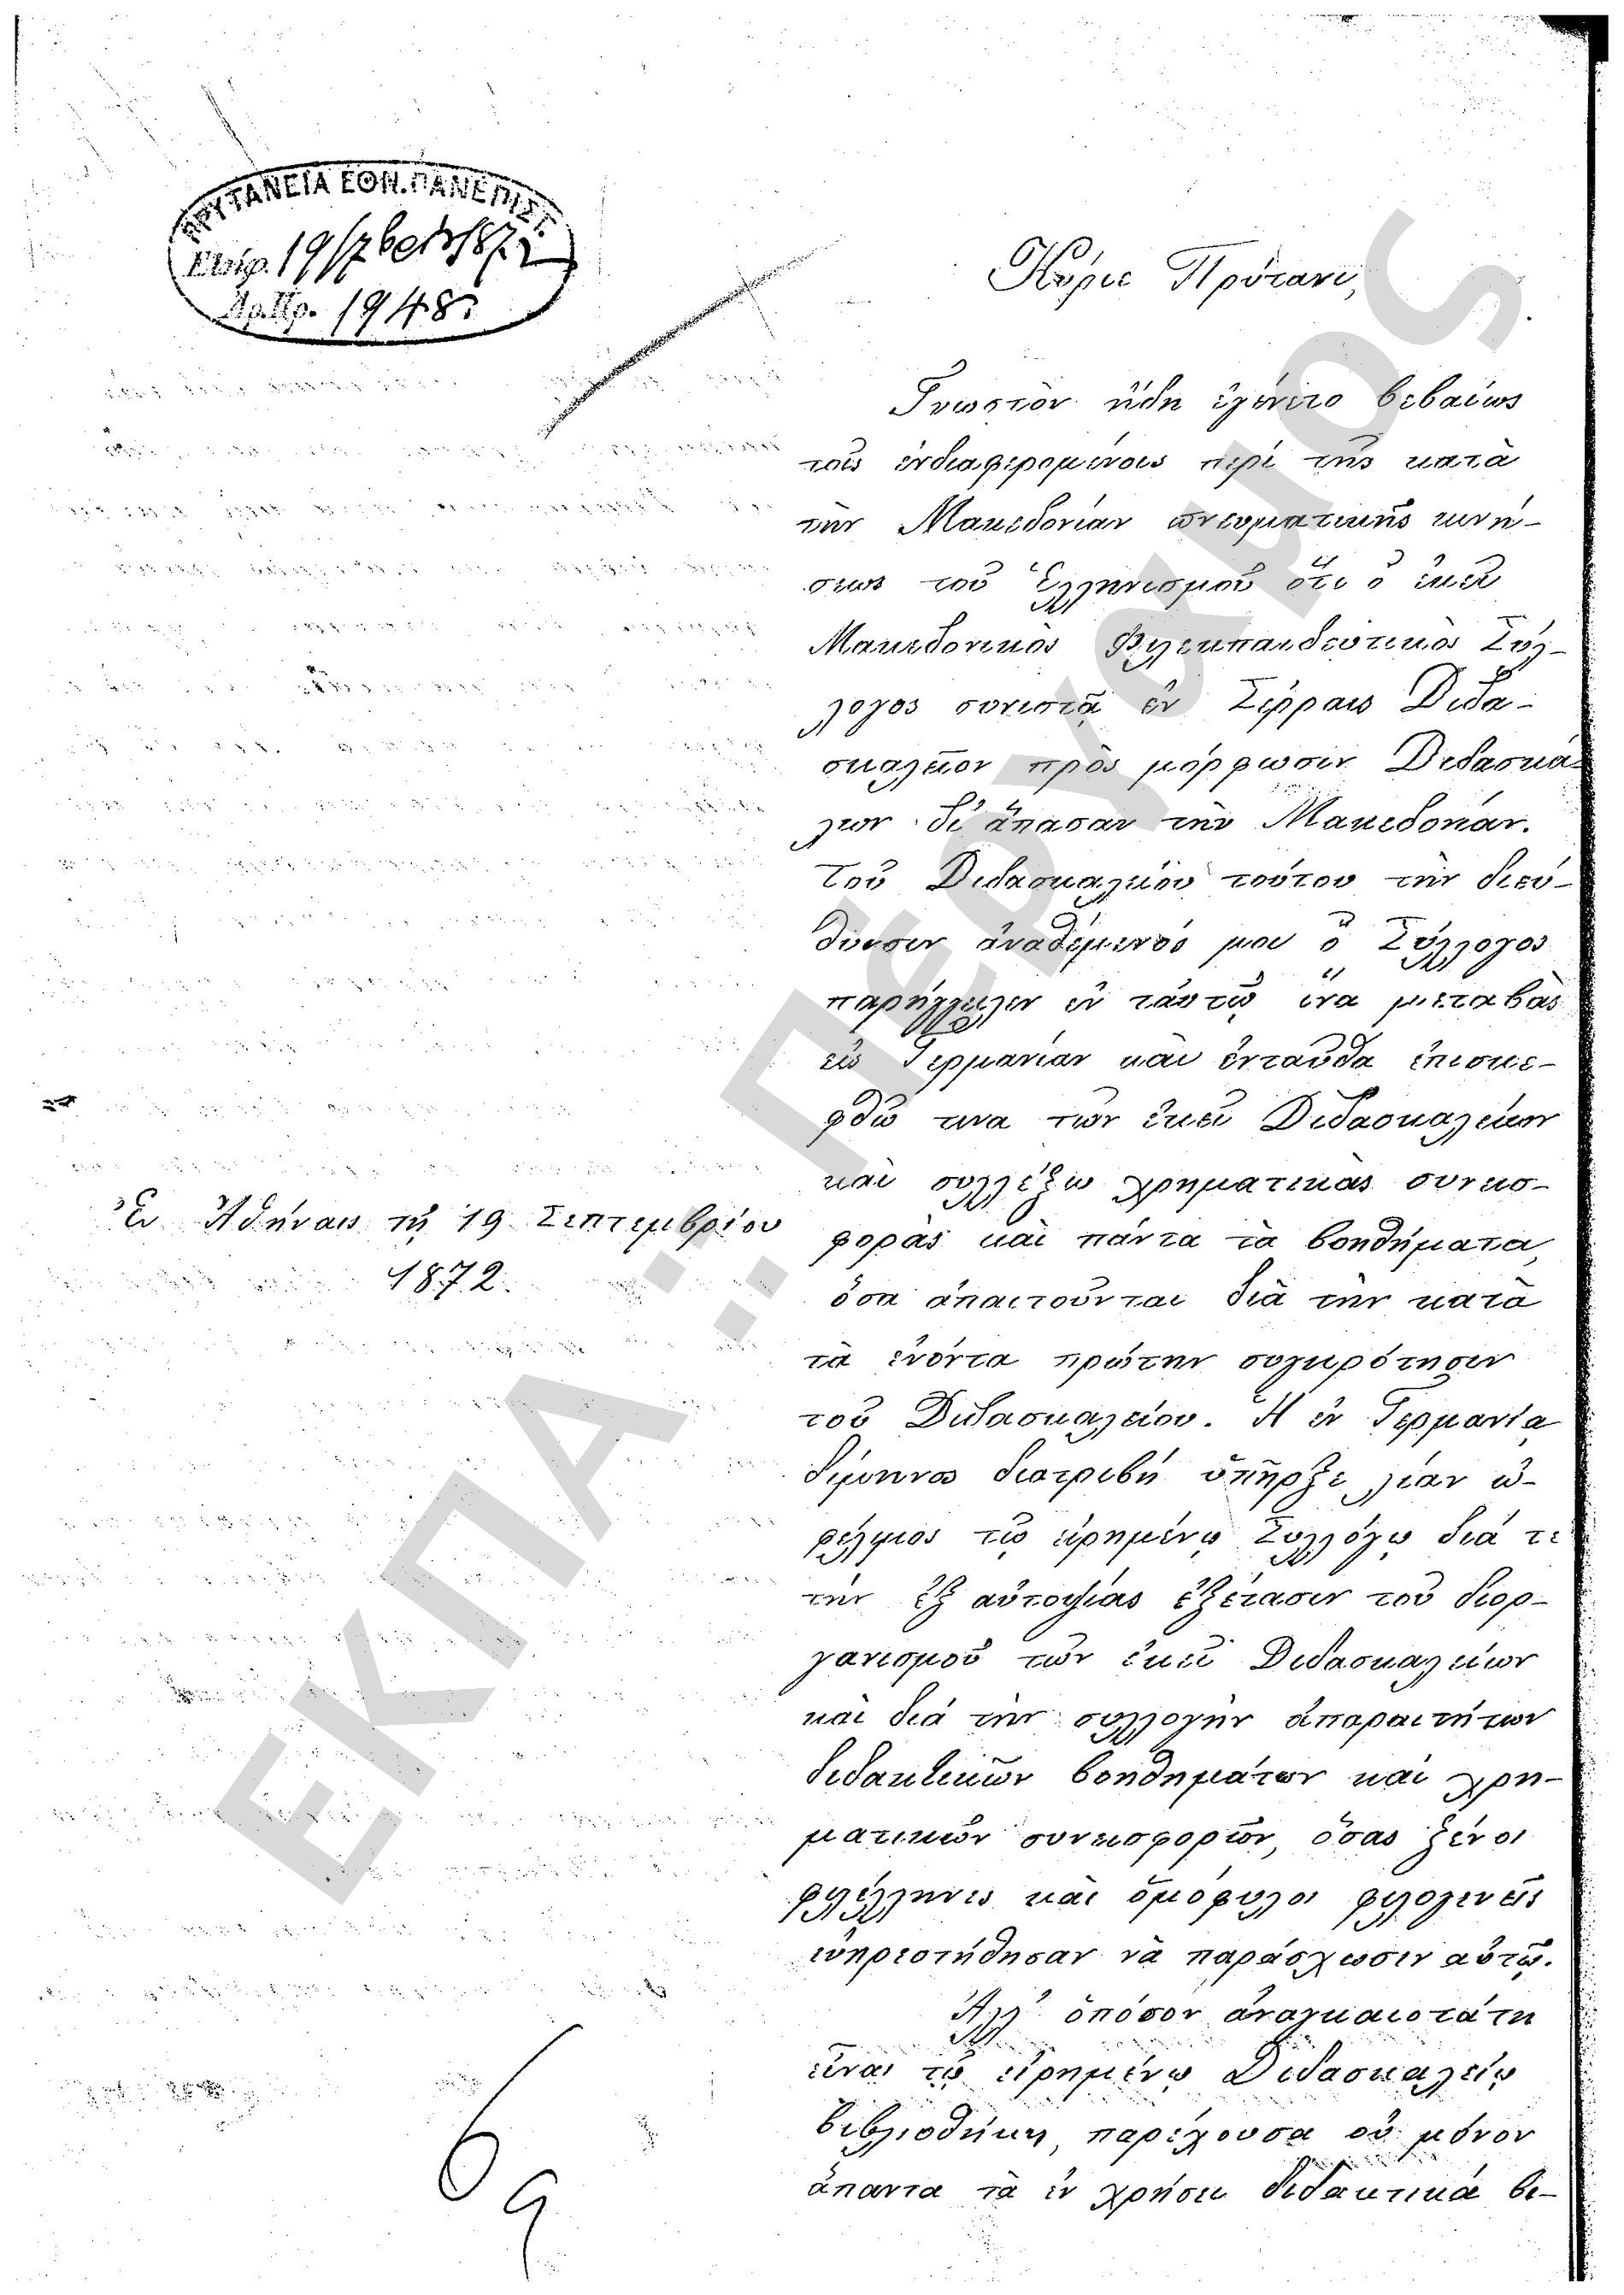 ΠΡΥΤΑΝΕΙΑ ΕΘΝ. ΠΑΝΕΠΙΣΤ.
19/7βρίου 1872
Αρ.Πρ. 1948
Κύριε Πρύτανι,
Γνωστὸν ἤδη ἐγένετο βεβαίως
τοῖς ἐνδιαφερομένοις περὶ τῆς κατὰ
τὴν Μακεδονίαν πνευματικῆς κινή-
σεως τοῦ Ἑλληνισμοῦ ὅτι ὁ ἐκεῖ
Μακεδονικὸς Φιλεκπαιδευτικὸς Σύλ-
λογος συνιστᾷ ἐν Σέρραις Διδα-
σκαλεῖον πρὸς μόρφωσιν Διδασκά-
λων δι' ἅπασαν τὴν Μακεδονίαν.
Τοῦ Διδασκαλείου τούτου τὴν διεύ-
θυνσιν ἀναθέμενός μοι ὁ Σύλλογος
παρήγγειλεν ἐν ταὐτῷ ἵνα μεταβὰς
εἰς Γερμανίαν καὶ ἐνταῦθα ἐπισκε-
φθῶ τινα τῶν ἐκεῖ Διδασκαλείων
καὶ συλλέξω χρηματικὰς συνεισ-
φορὰς καὶ πάντα τὰ βοηθήματα,
ὅσα ἀπαιτοῦνται διὰ τὴν κατὰ
τὰ ἐνόντα πρώτην συγκρότησιν
τοῦ Διδασκαλείου. Ἡ ἐν Γερμανίᾳ
δίμηνος διατριβή ὑπῆρξε λίαν ὠ-
φέλιμος τῷ εἰρημένῳ Συλλόγῳ διά τε
τὴν ἐξ αὐτοψίας ἐξέτασιν τοῦ διορ-
γανισμοῦ τῶν ἐκεῖ Διδασκαλείων
καὶ διὰ τὴν συλλογὴν ἀπαραιτήτων
διδακτικῶν βοηθημάτων καὶ χρη-
ματικῶν συνεισφορῶν, ὅσας ξένοι
φιλέλληνες καὶ ὁμόφυλοι φιλογενεῖς
εὐηρεστήθησαν νὰ παράσχωσιν αὐτῷ.
Ἀλλ' ὁπόσον ἀναγκαιοτάτη
εἶναι τῷ εἰρημένῳ Διδασκαλείῳ
βιβλιοθήκη, παρέχουσα οὐ μόνον
ἅπαντα τὰ ἐν χρήσει διδακτικά βι-
Ἐν Ἀθήναις τῇ 19 Σεπτεμβρίου
1872.
ΕΚΠΑ: Πέργαμος